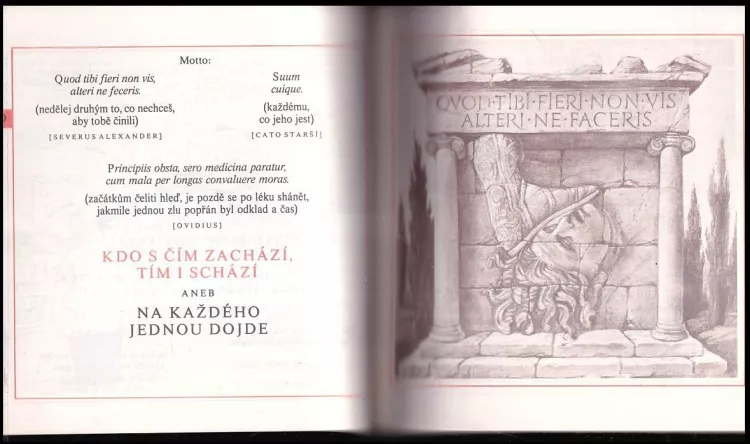 Motto:
Quod tibi fieri non vis,
alteri ne feceris.
(nedělej druhým to, co nechceš,
aby tobě činili)
[SEVERUS ALEXANDER]
Suum
cuique.
(každému,
co jeho jest)
[CATO STARŠÍ]
Principiis obsta, sero medicina paratur,
cum mala per longas convaluere moras.
(začátkům čeliti hleď, je pozdě se po léku shánět,
jakmile jednou zlu popřán byl odklad a čas)
[OVIDIUS]
KDO S ČÍM ZACHÁZÍ,
TÍM I SCHÁZÍ
ANEB
NA KAŽDÉHO
JEDNOU DOJDE
QVOD·TIBI·FIERI·NON·VIS
ALTERI·NE·FACERIS